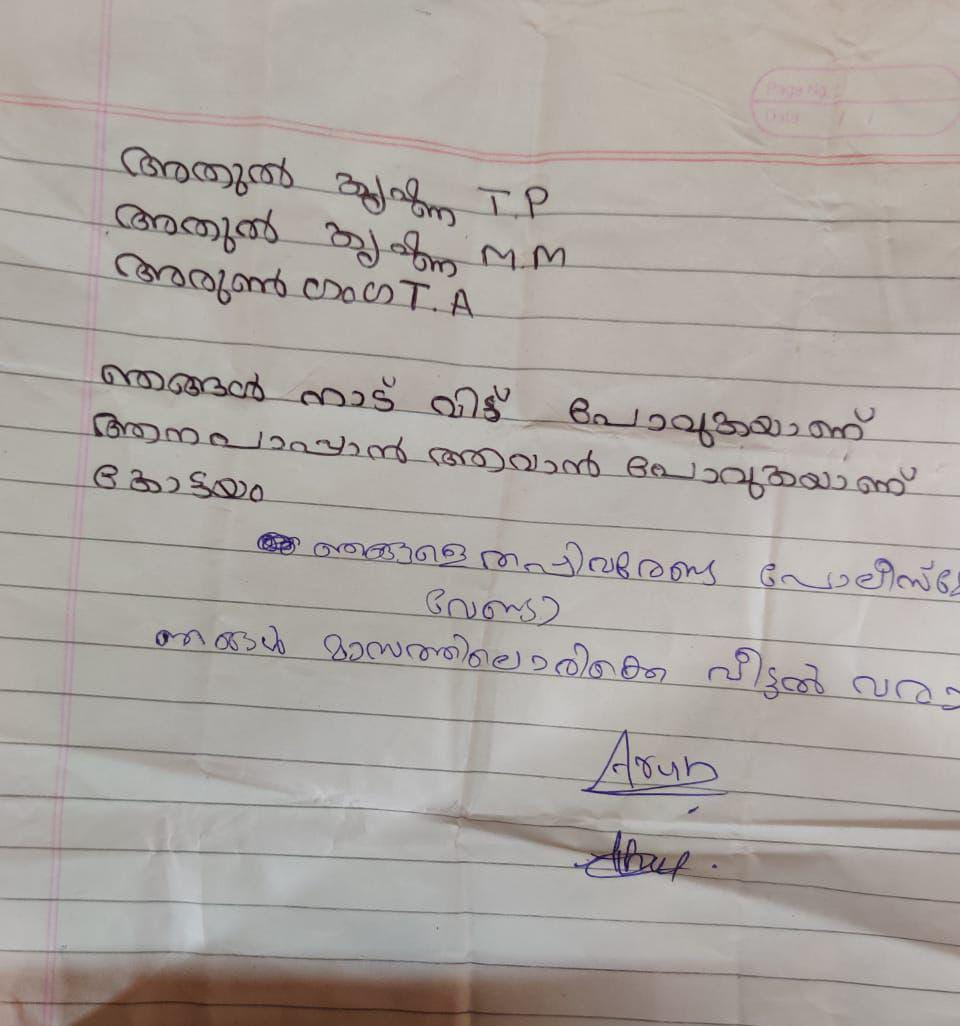 Page No.
Date / /
അതുൽ കൃഷ്ണ T.P
അതുൽ കൃഷ്ണ M.M
അരുൺ ഗംഗ T.A
ഞങ്ങൾ നാട് വിട്ട് പോവുകയാണ്
ആനപാപ്പാൻ ആവാൻ പോവുകയാണ്
കോട്ടയം
ഞങ്ങളെ തപ്പിവരേണ്ട
വേണ്ടാ
ഞങ്ങൾ മാസത്തിലൊരിക്കെ വീട്ടൽ
Arun